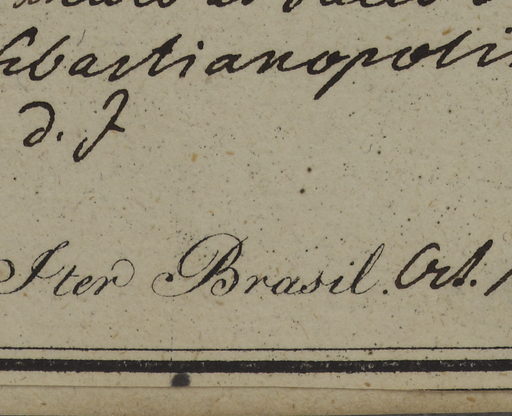 ebastianopoli
d. J
Iter Brasil. Oct. 1